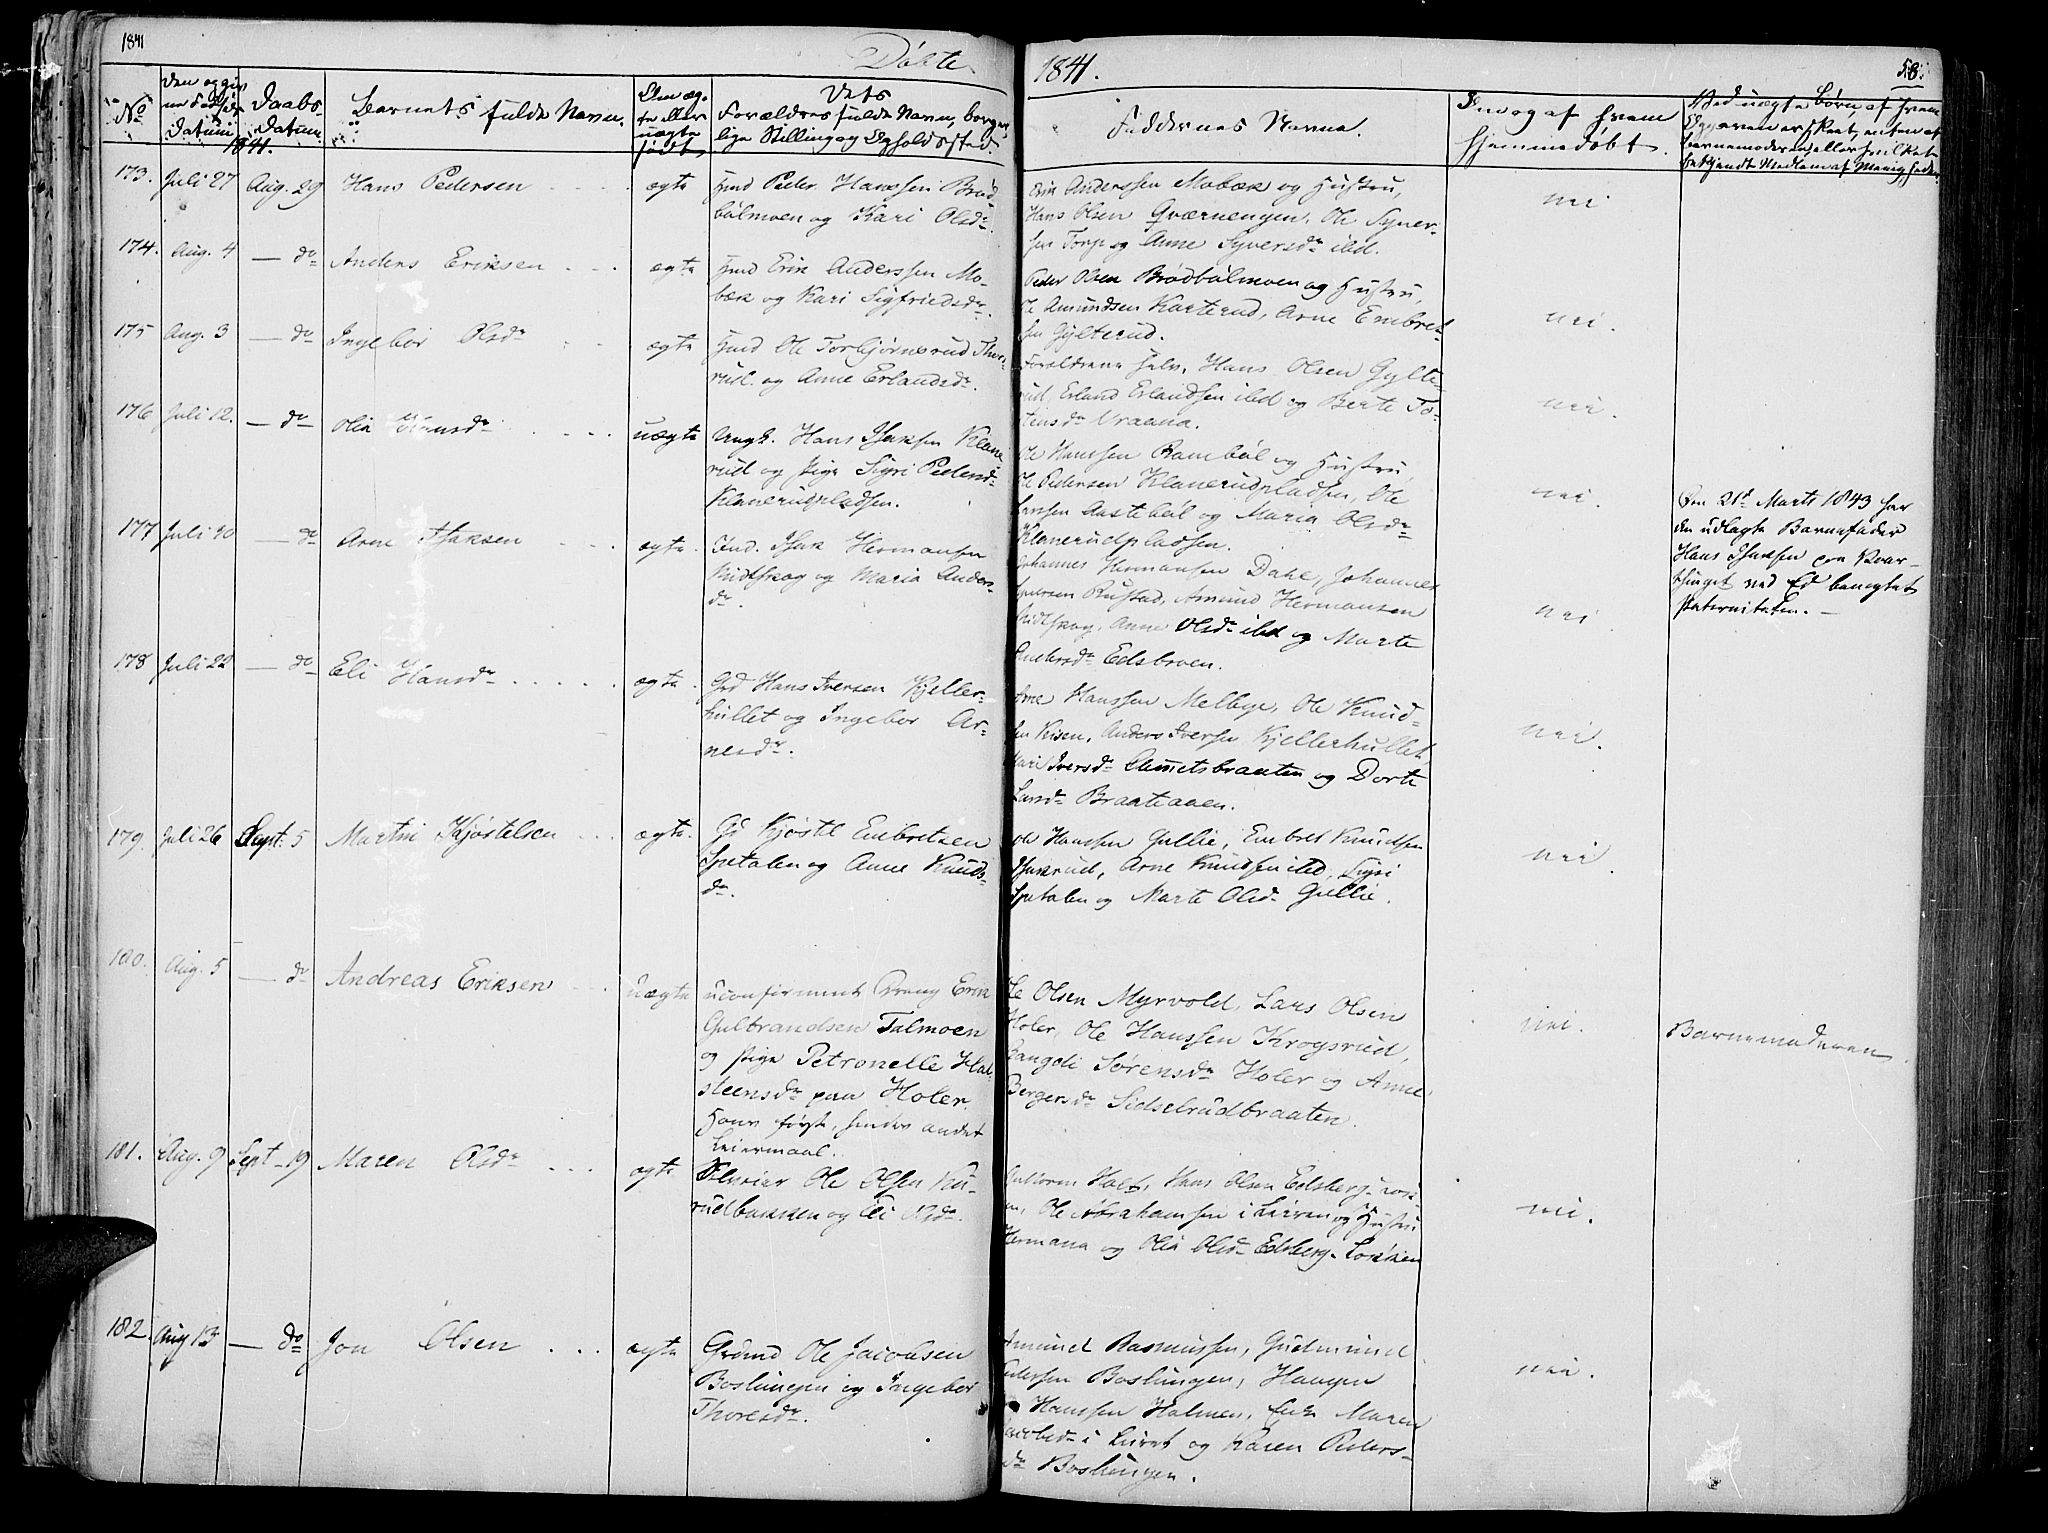 1841
Døbte
1841.
58.
No
Datum
1841.
Daabs
Datum
Barnets fulde Navn.
Dets
Forældres fulde Navn, borger-
lige Stilling og Opholdssted.
Faddernes Navne.
hjemmedøbt.
173. Juli 27 Aug. 29 Hans Pedersen ægte
Peder Hanssen Brød-
bølmoen og Kari Olsdr.
Erik Anderssen Mobæk og Hustru,
Hans Olsen Qværnengen, Ole Syver-
sen Torp og Anne Syversdr ibd.
nei
174. Aug. 4 — do Anders Eriksen ægte
Erik Anderssen Mo-
bæk og Kari Sigfriedsdr.
Peder Olsen Brødbølmoen og Hustru,
Ole Amundsen Karterud, Arne Embret-
sen Gylterud.
nei.
175 Aug. 3 — do Ingebor Olsdr ægte
Ole Torbjørnsrud
og Anne Erlandsdr.
Forældrene selv, Hans Olsen Gylte-
rud, Erland Erlandsen ibd og Berte To-
stensdr Vraana.
nei.
176 Juli 12. — do Olia Hansdr uægte
Ungk. Hans Isaksen Klane-
rud og Pige Sigri Pedersdr
Klanerudpladsen.
Ole Hanssen Rambøl og Hustru,
Ole Pedersen Klanerudpladsen, Ole
Larsen Aastebøl og Maria Olsdr
Klanerudpladsen.
nei.
Den 21d Marts 1843 har
den udlagte Barnefader
Hans Isaksen paa Vaar-
thinget ved Ed benegtet
Paterniteten. —
177 Juli 10 — do Arne Isaksen ægte.
Ind. Isak Hermansen
Midtskog og Maria Anders-
dr.
Johannes Hermansen Dahl, Johannes
Rustad, Amund Hermansen
Midtskog, Anne Olsdr ibd og Marte
Andersdr Edsbroen.
nei
178 Juli 22 — do Eli Hansdr ægte.
Grd Hans Iversen Kjeller-
hullet og Ingebor Ar-
nesdr.
Arne Hanssen Melbye, Ole Knud-
sen, Anders Iversen Kjellerhullet,
Mari Iversdr og Dorte
Larsdr Braateaaen.
nei.
179. Juli 26 Sept. 5 Martin Kjøstelsen ægte.
Gd Kjøstel Embretsen
Spetalen og Anne Knuds-
dr.
Ole Hanssen Gullie, Embret Knudsen
Isakrud, Arne Knudsen ibd, Sigri
Spetalen og Marte Olsdr Gullie.
nei
180. Aug. 5 — do Andreas Eriksen uægte
uconfirmeret Dreng Erik
Gulbrandsen Tulmoen
og Pige Petronelle Hal-
steensdr paa Holer.
Hans første, hendes andet
Leiermaal.
Ole Olsen Myrvold, Lars Olsen
Holer, Ole Hanssen Krogsrud,
Rangdi Sørensdr Holer og Anne
Bergersdr Sidselrudbraaten.
nei.
Barnemoderen
181. Aug. 9 Sept. 19 Maren Olsdr ægte
Ole Olsen Ku-
rudbakken og Eli Olsdr.
Holt, Hans Olsen Edsberg
Ole Abrahamsen i Leiren og Hustru
Hermana og Olia Olsdr Edsberg
nei.
182. Aug 13 — do Jon Olsen ægte
Grdmd Ole Jacobsen
Boslungen og Ingebor
Thoresdr.
Amund Rasmussen, Gudmund
Pedersen Boslungen, Haagen
Hanssen Holmen, Enke Maren
Jacobsdr i Leiret og Karen Peders-
dr Boslungen.
nei.